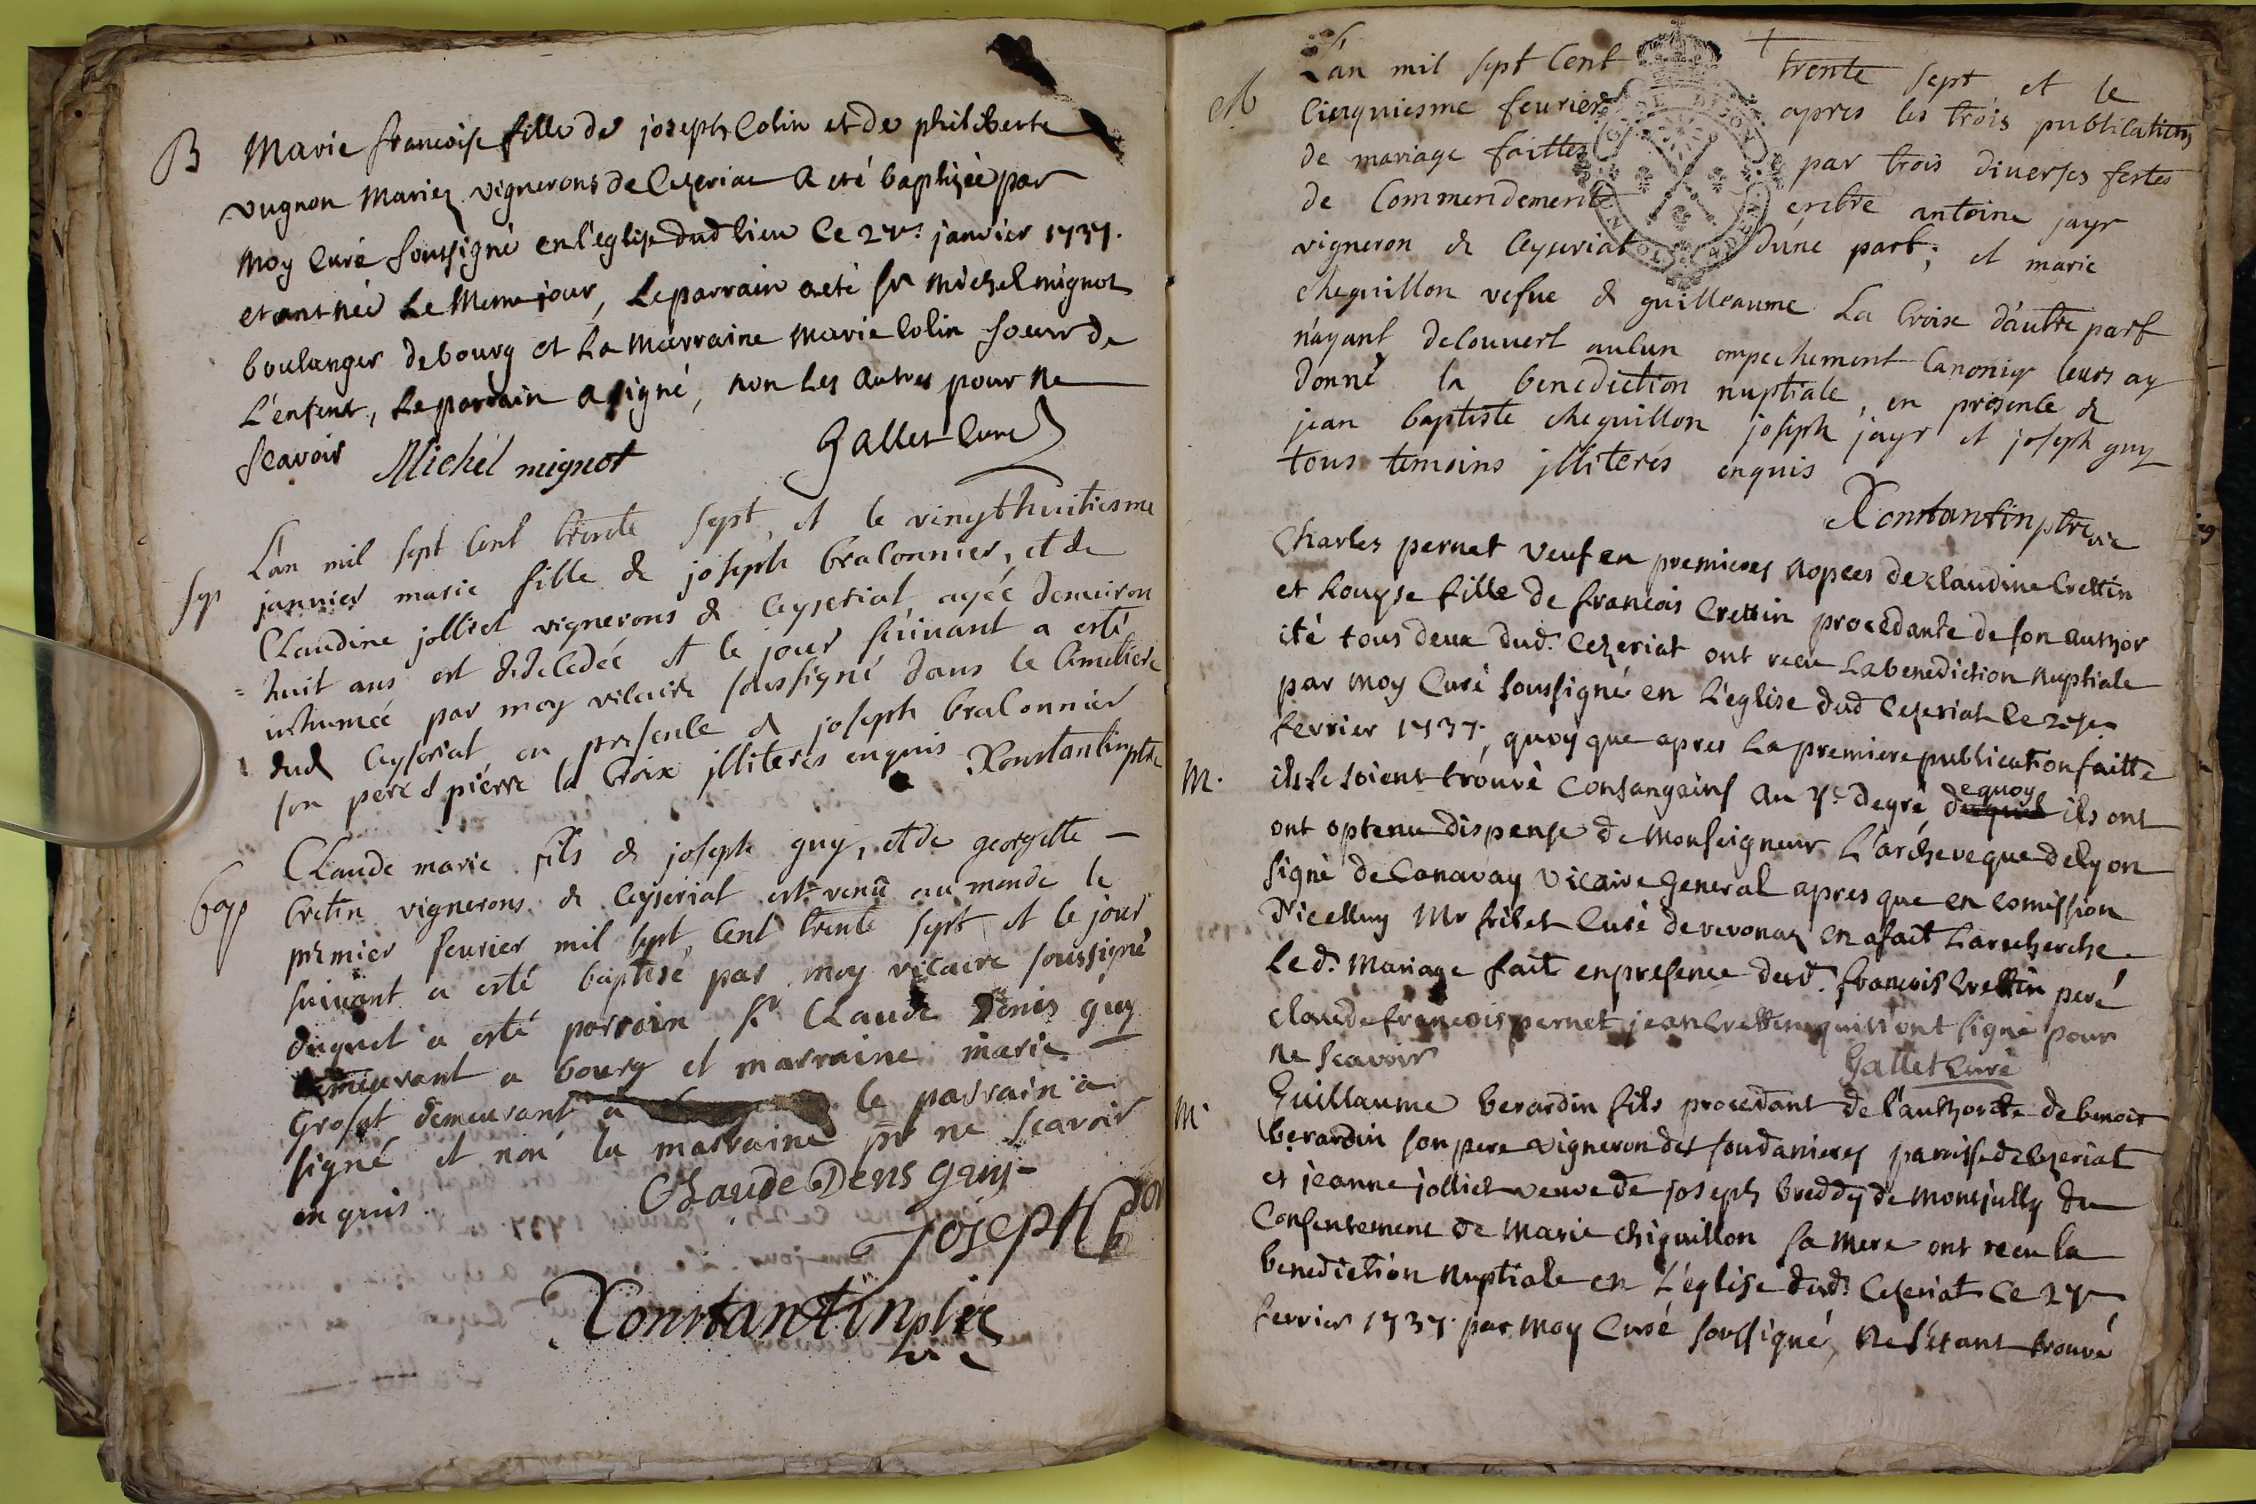 B Marie francoise fille de joseph Colin et de philiberte
vugnon Mariez vignerons de Cezeriat a eté baptisée par
moy Curé soussigné en l'eglise dud lieu Ce janvier 1737.
etant née Le Meme jour, Le parrain a eté sr Michel mignot
boulanger de bourg et La Marraine Marie Colin soeur de
L'enfant, Le parrain a signé, non Les autres pour ne
scavoir Michel mignot Gallet Curé
L'an mil sept Cent trente sept, et le vingt huitiesme
sep janvier marie fille de joseph braconnier, et de
Claudine jolliet vignerons de Ceyseriat, agée denviron
huit ans est decedée et le jour suivant a esté
inhumée par moy vicaire soussigné dans le Cimetiere
dud Ceyseriat en presence de joseph braconnier
son pere et pierre la Croix illiterés enquis Constantin ptre
bap Claude marie fils de joseph guy, et de georgette
Cretin vignerons de Ceyseriat est venu au monde le
premier feurier mil sept Cent trente sept et le jour
suivant a esté baptisé par moy vicaire soussigné
duquel a esté parrain sr Claude Denis guy
demeurant a bourg et marraine marie
Grosat demeurant a le parrain a
signé et non la marraine pr ne scavoir
enquis. Claude Denis guy
Joseph
Constantin ptre
vic
M L'an mil sept Cent trente sept et le
Cinquiesme feurier apres les trois publications
de mariage faittes par trois diverses festes
de Commendement entre antoine jayr
vigneron de Ceyseriat d'une part; et marie
cheguillon vefue de guilleaume La Croix d'autre part
n'ayant decouvert aulcun empechement Canoniq leurs ay
donné la benediction nuptiale, en presence de
jean baptiste cheguillon joseph jayr et joseph guy
tous temoins illiterés enquis
Constantin ptre vic
Charles pernet veuf en premieres nopces de claudine Crettin
et Louyse fille de francois Crettin procedante de son author
ité tous deux dud. Cezeriat ont recu La benediction nuptiale
par moy Curé soussigné en L'eglise dud Cezeriat Ce
fevrier 1737, quoy que apres La premiere publication faitte
M. ils se soient trouvé Consanguins au 4e degré, dequoy ils ont
ont optenu dispense de Monseigneur L'archeveque de lyon
signé de Canavay vicaire General apres que en comission
d'icelluy Mr frilet Curé de revonaz en a fait La recherche
Led. Mariage fait en presence dud. francois Crettin peré
claude francois pernet jean Crettin qui n'ont signé pour
ne scavoir Gallet Curé
M Guillaume berardin fils procedant de l'authorite de benoit
berardin son pere vigneron des soudanieres paroisse de Cezeriat
et jeanne jolliet veuve de joseph breddy de Montjully du
Consentement de Marie chiguillon sa Mere ont recu la
benediction nuptiale en L'eglise dud. Cezeriat Ce
fevrier 1737. par moy Curé soussigné, ne s'etant trouvé